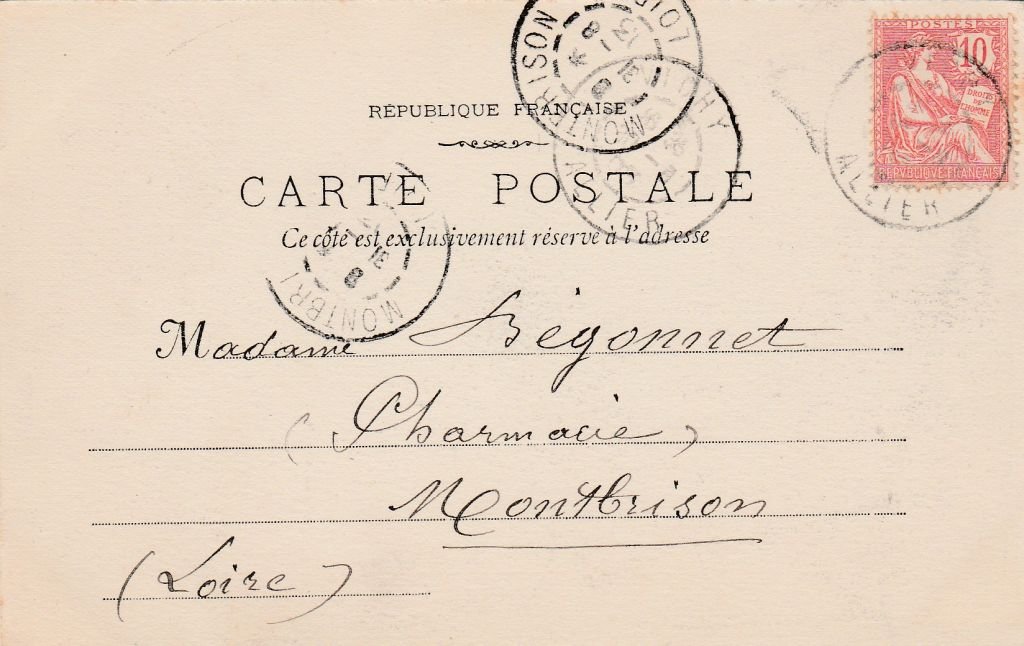 POSTES
10
DROITS
DE
L'HOMME
REPVBLIQVE FRANÇAISE
RÉPUBLIQUE FRANÇAISE
CARTE POSTALE
Ce côté est exclusivement réservé à l'adresse
MONTBRISON LOIRE
VICHY ALLIER
ALLIER
MONTBRI
Madame Bégonnet
(Pharmacie)
Montbrison
(Loire)